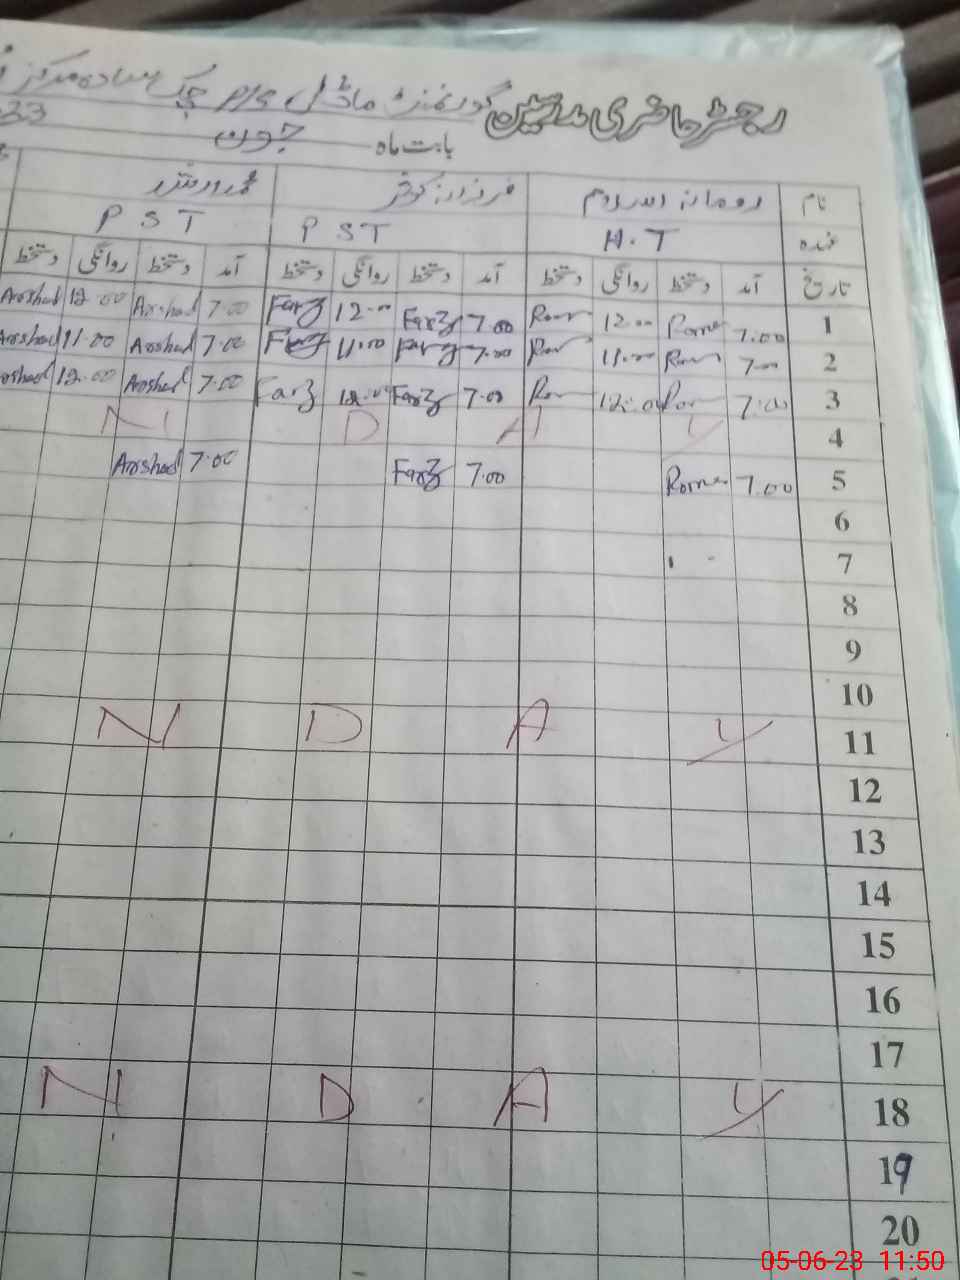 رجسٹر حاضری مدرسین گورنمنٹ ماڈل P/S چک سادہ مرکز
بابت ماہ جون 23
نام رومانہ اسلام فرزانہ کوثر محمد ارشد
عہدہ H.T P S T P S T
تاریخ آمد دستخط روانگی دستخط آمد دستخط روانگی دستخط آمد دستخط روانگی دستخط
1 7.00 Roma 12.00 Rom 7.00 Farz 12.00 Farz 7.00 Arshad 12.00 Arshad
2 7.00 Rom 11.00 Rom 7.00 Farz 11.00 Farz 7.00 Arshad 11.00 Arshad
3 7.00 Rom 12.00 Rom 7.00 Farz 12.00 Farz 7.00 Arshad 12.00 Arshad
4 N D A Y
5 7.00 Roma 7.00 Farz 7.00 Arshad
6
7
8
9
10
11 N D A Y
12
13
14
15
16
17
18 N D A Y
19
20
05-06-23 11:50